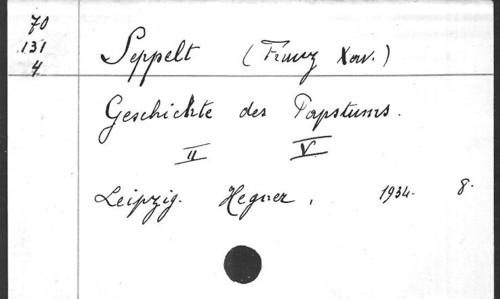 70
131
4
Seppelt (Franz Xav.)
Geschichte des Papstums.
II V
Leipzig. Hegner, 1934. 8.